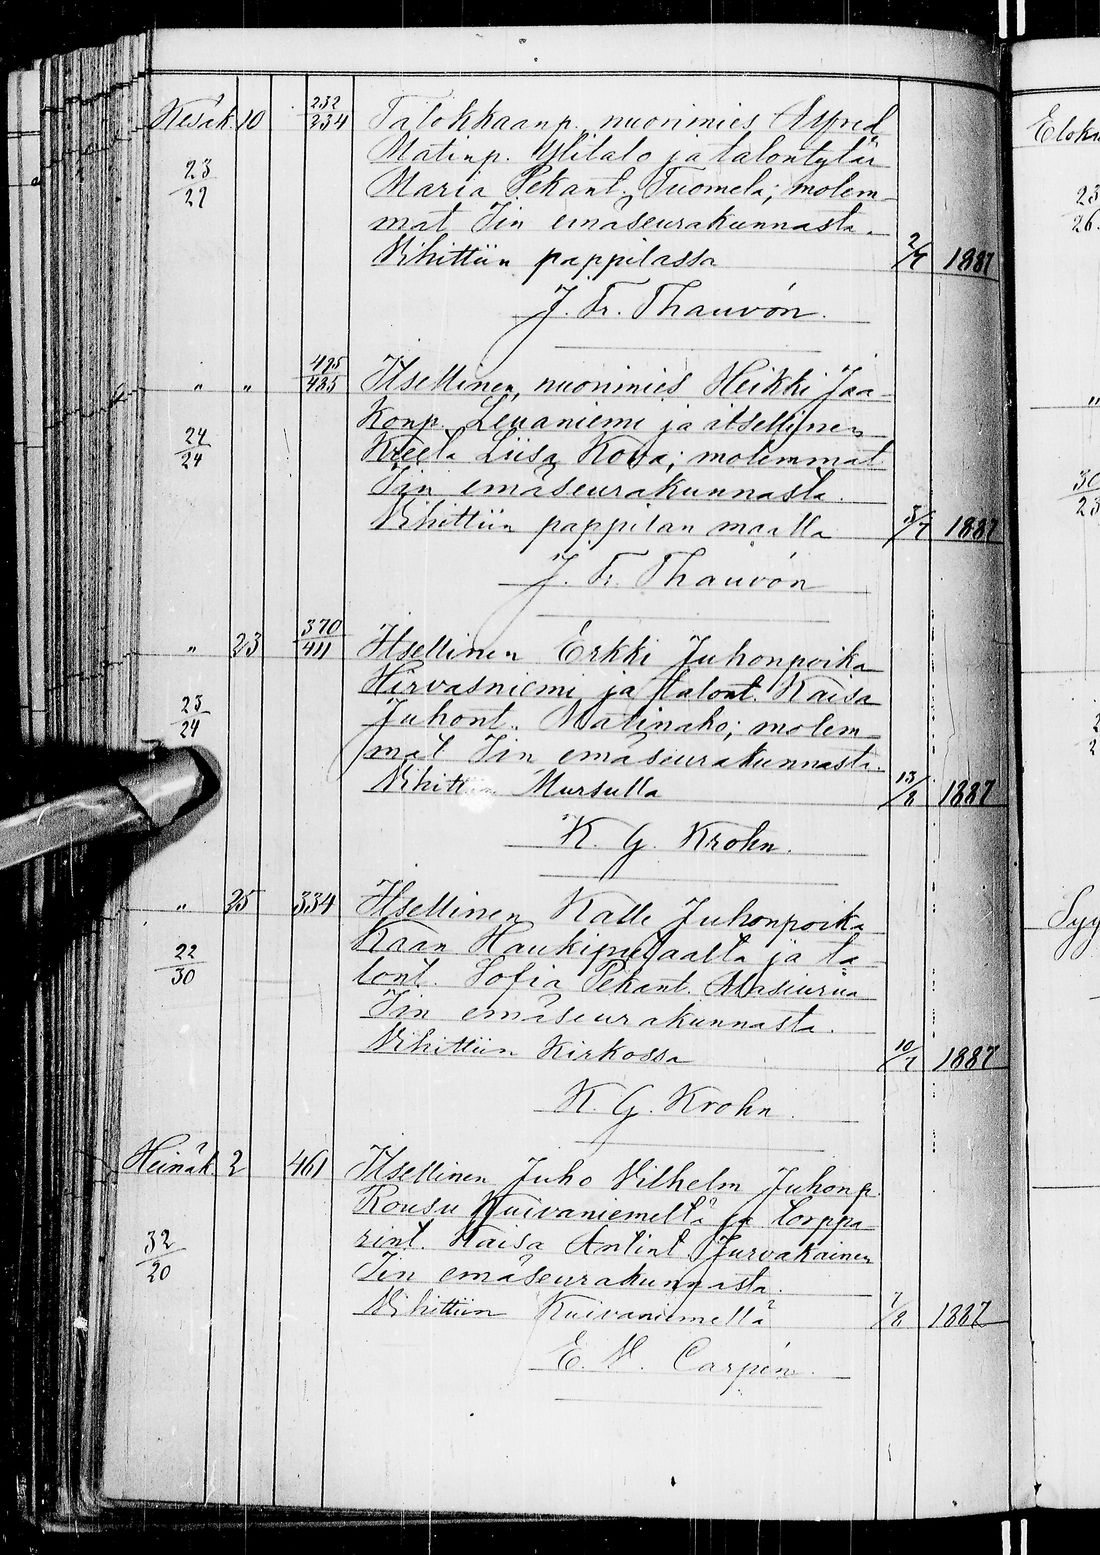 Kesäk. 10 232/234 Talokkaanp. nuorimies Alfred
Matinp. Ylitalo ja talontytär
23/27 Maria Pekant. Tuomela; molem-
mat Iin emäseurakunnasta.
Vihittiin pappilassa 2/7 1887
J. Fr. Thauvón.
" " 495/485 Itsellinen, nuorimies Heikki Jaa-
konp. Leuaniemi ja itsellinen
24/24 Kreeta Liisa Kova; molemmat
Iin emäseurakunnasta.
Vihittiin pappilan maalla 3/7 1887
J. Fr. Thauvón
" 23 370/411 Itsellinen Erkki Juhonpoika
Hirvasniemi ja talont. Kaisa
25/24 Juhont. Matinaho; molem-
mat Iin emäseurakunnasta.
Vihittiin Mursulla 13/8 1887
K. G. Krohn.
" 25 334 Itsellinen Kalle Juhonpoika
Kaan Haukiputaalta ja ta-
22/30 lont. Sofia Pekant.
Iin emäseurakunnasta.
Vihittiin Kirkossa 10/7 1887
K. G. Krohn.
Heinäk. 2 461 Itsellinen Juho Vilhelm Juhonp.
Rousu Kuivaniemeltä ja torppa-
32/20 rint. Kaisa Antint. Jurvakainen
Iin emäseurakunnasta.
Vihittiin Kuivaniemellä 7/8 1887
E. V. Carpén.
Eloku
23
26.
"
30
23
Syy